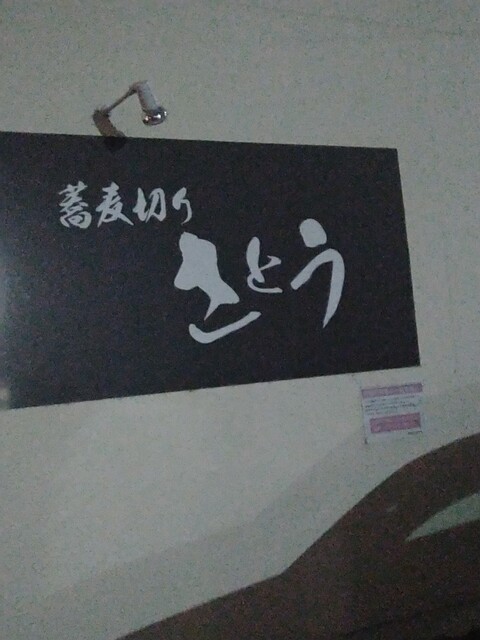 蕎麦切り
さとう